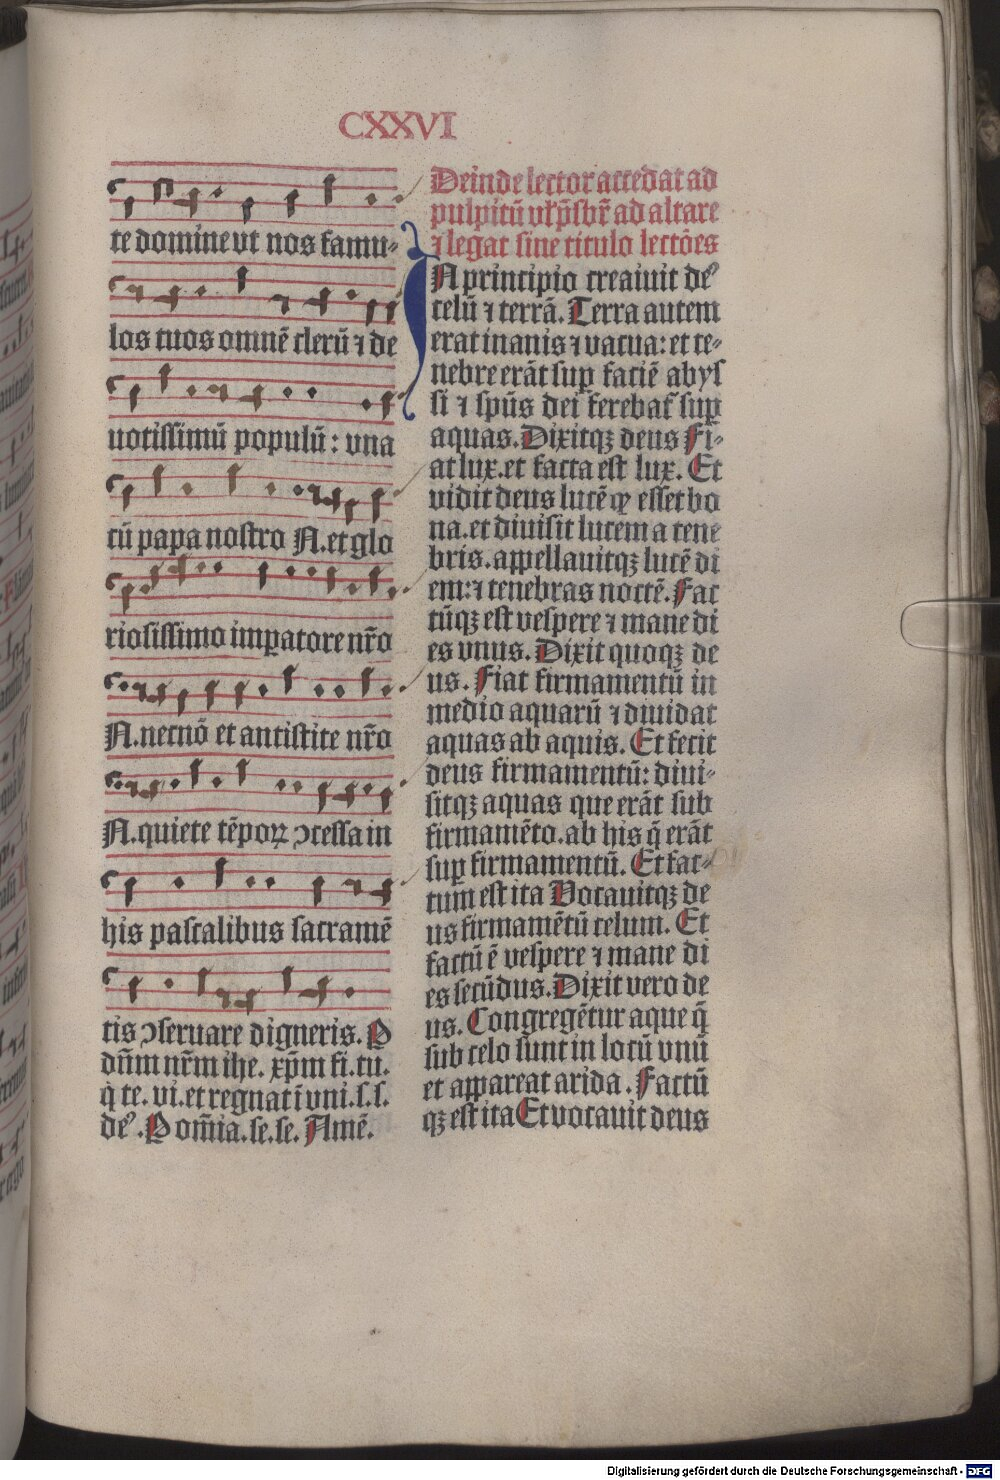 CXXVI
te domine vt nos famu⸗
los tuos omnē clerū ⁊ de
uotissimū populū : vna
cū papa nostro N. et glo
riosissimo imꝑatore nr̄o
N. necnō et antistite nr̄o
N. quiete tēpoꝝ ↄcessa in
his pascalibus sacramē
tis ↄseruare digneris. P
dn̄m nr̄m ihe. xp̄m fi. tu.
q̇ te. vi. et regnat ī vni. s. s.
deꝰ. P om̄ia. se. se. Amē.
Deinde lector accedat ad
pulpitū vl̓ p̄sbr̄ ad altare
⁊ legat sine titulo lectōes
IN principio creauit deꝰ
celū ⁊ terrā. Terra autem
erat inanis ⁊ vacua: et te⸗
nebre erāt suꝑ faciē abys
si ⁊ spūs dei ferebat᷑ suꝑ
aquas. Dixitqꝫ deus Fi⸗
at lux. et facta est lux. Et
vidit deus lucē ꝙ esset bo
na. et diuisit lucem a tene
bris. appellauitqꝫ lucē di
em: ⁊ tenebras noctē. Fac
tūqꝫ est vespere ⁊ mane di
es vnus. Dixit quoqꝫ de
us. Fiat firmamentū in
medio aquarū ⁊ diuidat
aquas ab aquis. Et fecit
deus firmamentū: diui⸗
sitqꝫ aquas que erāt sub
firmamēto. ab his q̄ erāt
suꝑ firmamentū. Et fac⸗
tum est ita Vocauitqꝫ de
us firmamētū celum. Et
factū ē vespere ⁊ mane di
es secūdus. Dixit vero de
us. Congregētur aque q̄
sub celo sunt in locū vnū
et appareat arida . Factū
qꝫ est ita Et vocauit deus
Digitalisierung gefördert durch die Deutsche Forschungsgemeinschaft - DFG